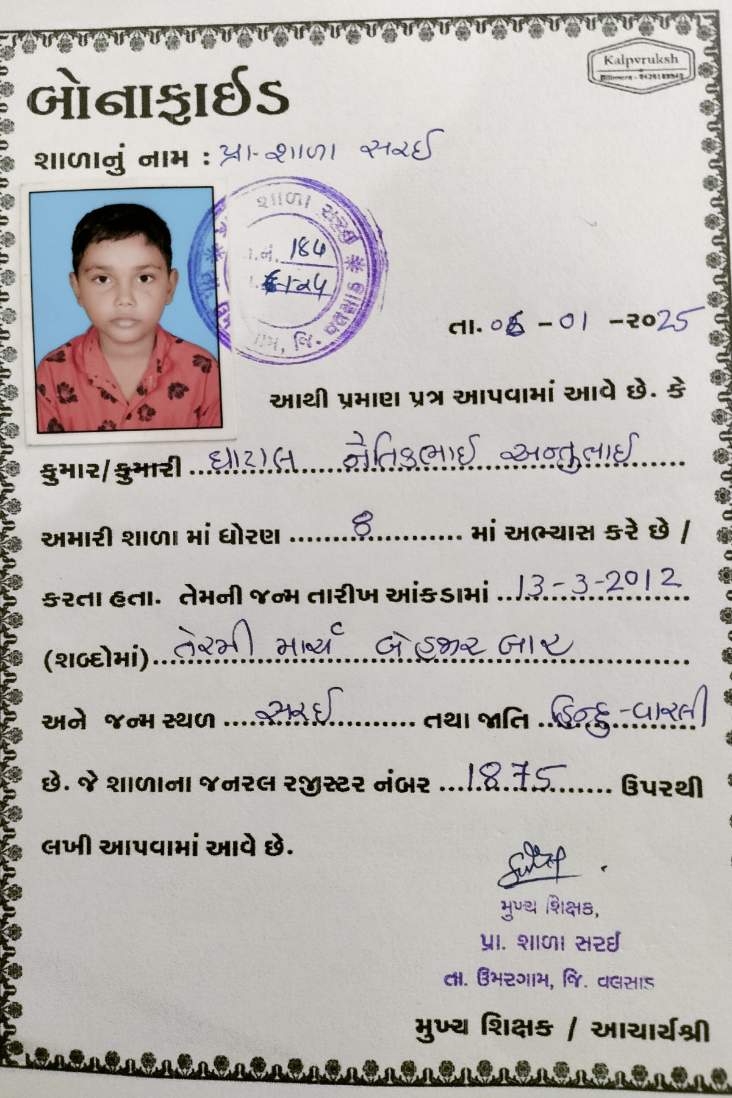 Kalpvruksh
બોનાફાઈડ
શાળાનું નામ : પ્રા-શાળા સરઈ
શાળા સરઈ
184
તા. 06 - 01 - ૨૦25
આથી પ્રમાણ પત્ર આપવામાં આવે છે. કે
કુમાર/કુમારી ઘાટાલ નૈતિકભાઈ
અમારી શાળા માં ધોરણ 8 માં અભ્યાસ કરે છે /
કરતા હતા. તેમની જન્મ તારીખ આંકડામાં 13-3-2012
(શબ્દોમાં) તેરમી માર્ચ બે હજાર બાર
અને જન્મ સ્થળ સરઈ તથા જાતિ હિન્દુ-વારલી
છે. જે શાળાના જનરલ રજીસ્ટર નંબર 1875 ઉપરથી
લખી આપવામાં આવે છે.
મુખ્ય શિક્ષક,
પ્રા. શાળા સરઈ
તા. ઉમરગામ, જિ. વલસાડ
મુખ્ય શિક્ષક / આચાર્યશ્રી